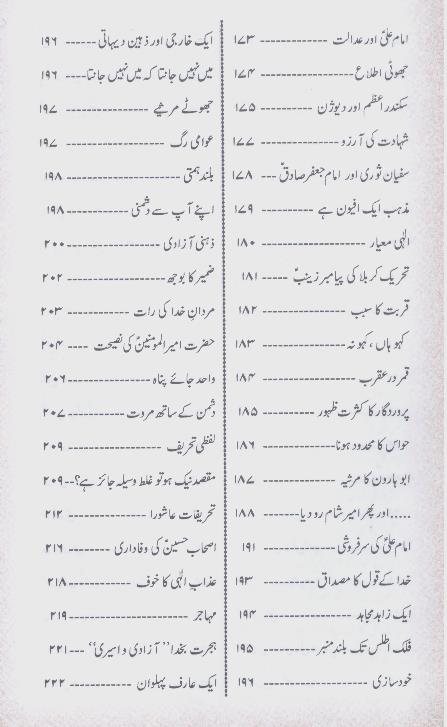 امام علیؑ اور عدالت -------------- ۱۷۳
جھوٹی اطلاع -------------- ۱۷۴
سکندر اعظم اور دیوژن -------------- ۱۷۵
شہادت کی آرزو -------------- ۱۷۷
سفیان ثوری اور امام جعفر صادقؑ --- ۱۷۸
مذہب ایک افیون ہے ---------- ۱۷۹
الٰہی معیار -------------- ۱۸۰
تحریک کربلا کی پیامبر زینبؑ ----- ۱۸۱
قربت کا سبب -------------- ۱۸۲
کہو ہاں، کہو نہ -------------- ۱۸۳
قمر در عقرب -------------- ۱۸۴
پروردگار کا کثرت ظہور -------- ۱۸۵
حواس کا محدود ہونا ------------ ۱۸۶
ابو ہارون کا مرثیہ ------------ ۱۸۷
.....اور پھر امیر شام رو دیا ------- ۱۸۸
امام علیؑ کی سرفروشی ------------ ۱۹۱
خدا کے قول کا مصداق ---------- ۱۹۳
ایک زاہد مجاہد -------------- ۱۹۴
فلک اطلس تک بلند منبر ---------- ۱۹۵
خود سازی -------------- ۱۹۶
ایک خارجی اور ذہین دیہاتی ------ ۱۹۶
میں نہیں جانتا کہ میں نہیں جانتا ---- ۱۹۶
جھوٹے مرثیے -------------- ۱۹۷
عوامی رگ -------------- ۱۹۷
بلند ہمتی -------------- ۱۹۸
اپنے آپ سے دشمنی ------------ ۱۹۸
ذہنی آزادی -------------- ۲۰۰
ضمیر کا بوجھ -------------- ۲۰۲
مردانِ خدا کی رات ------------ ۲۰۳
حضرت امیر المومنینؑ کی نصیحت ---- ۲۰۴
واحد جائے پناہ -------------- ۲۰۶
دشمن کے ساتھ مروت ---------- ۲۰۷
لفظی تحریف -------------- ۲۰۹
مقصد نیک ہو تو غلط وسیلہ جائز ہے؟-- ۲۰۹
تحریفات عاشورا -------------- ۲۱۲
اصحاب حسینؑ کی وفاداری -------- ۲۱۶
عذاب الٰہی کا خوف ------------ ۲۱۸
مہاجر -------------- ۲۱۹
ہجرت بخدا ''آزادی و اسیری'' --- ۲۲۱
ایک عارف پہلوان ------------ ۲۲۲